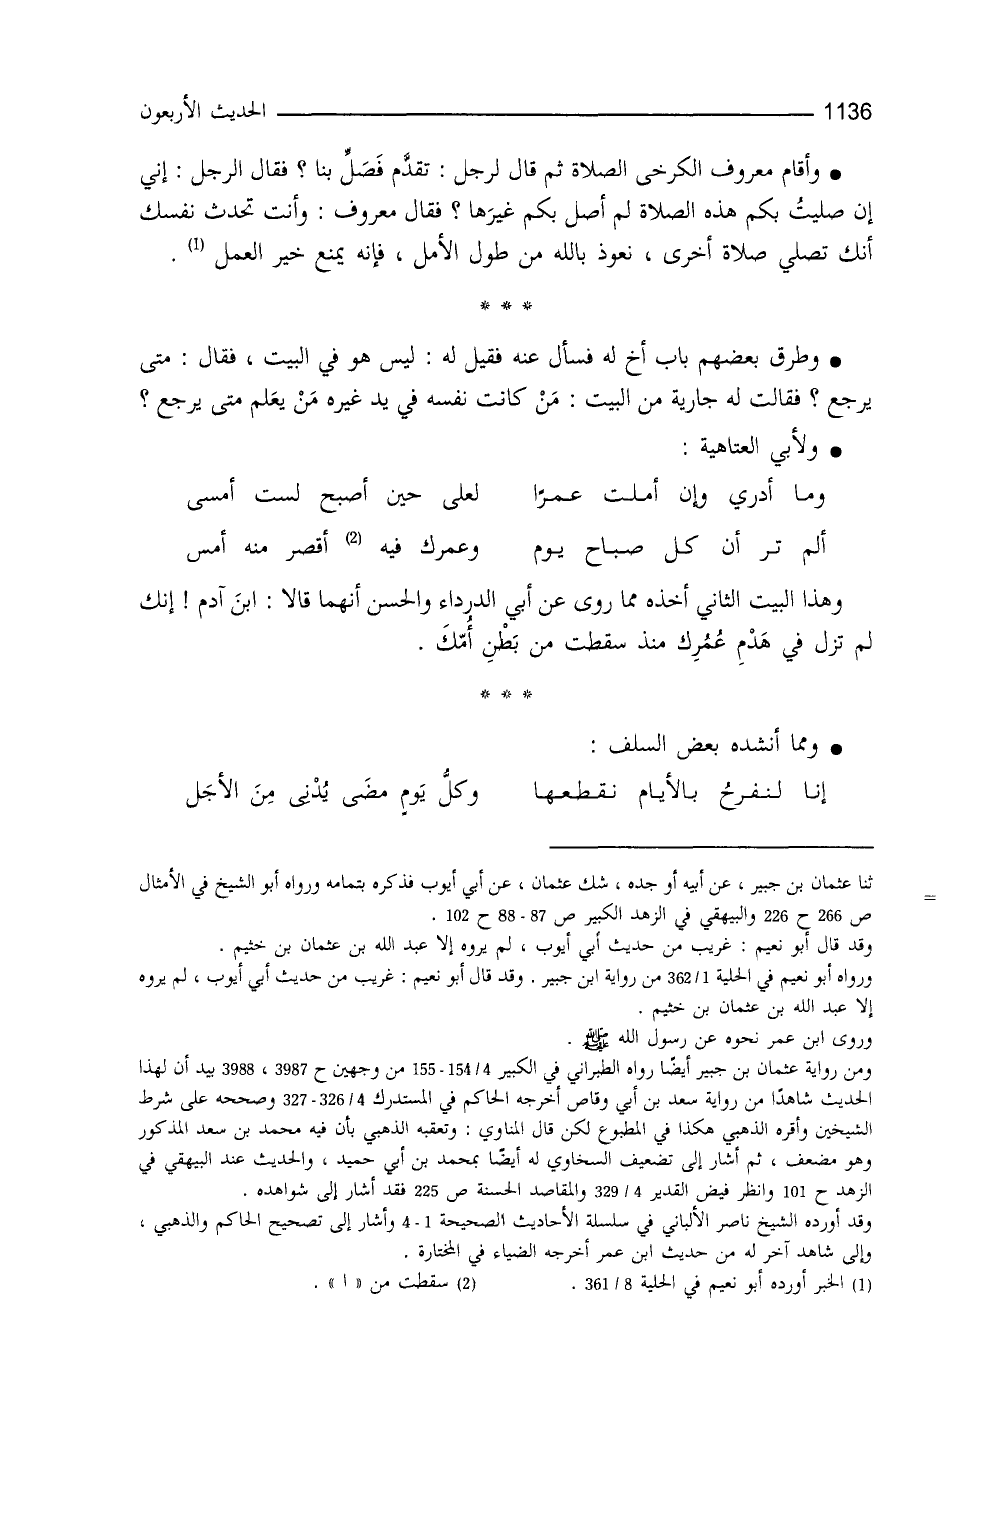 1136 الحديث الأربعون
● وأقام معروف الكرخى الصلاة ثم قال لرجل : تقدَّم فَصَلِّ بنا ؟ فقال الرجل : إني
إن صليتُ بكم هذه الصلاة لم أصل بكم غيرَها ؟ فقال معروف : وأنت تحدث نفسك
أنك تصلي صلاة أخرى ، نعوذ بالله من طول الأمل ، فإنه يمنع خير العمل (1) .
* * *
● وطرق بعضهم باب أخ له فسأل عنه فقيل له : ليس هو في البيت ، فقال : متى
يرجع ؟ فقالت له جارية من البيت : مَنْ كانت نفسه في يد غيره مَنْ يعَلم متى يرجع ؟
● ولأبي العتاهية :
وما أدري وإن أملت عمرًا لعلى حين أصبح لست أمسى
ألم تر أن كل صباح يوم وعمرك فيه (2) أقصر منه أمس
وهذا البيت الثاني أخذه مما روى عن أبي الدرداء والحسن أنهما قالا : ابنَ آدم ! إنك
لم تزل في هَدْمِ عُمُرِك منذ سقطت من بَطْنِ أُمّكَ .
* * *
● ومما أنشده بعض السلف :
إنا لنفرحُ بالأيام نقطعها وكلُّ يَومٍ مضَى يُدْنِى مِنَ الأجَل
ثنا عثمان بن جبير ، عن أبيه أو جده ، شك عثمان ، عن أبي أيوب فذكره بتمامه ورواه أبو الشيخ في الأمثال =
ص 266 ح 226 والبيهقي في الزهد الكبير ص 87 - 88 ح 102 .
وقد قال أبو نعيم : غريب من حديث أبي أيوب ، لم يروه إلا عبد الله بن عثمان بن خثيم .
ورواه أبو نعيم في الحلية 362/1 من رواية ابن جبير . وقد قال أبو نعيم : غريب من حديث أبي أيوب ، لم يروه
إلا عبد الله بن عثمان بن خثيم .
وروى ابن عمر نحوه عن رسول الله ﷺ .
ومن رواية عثمان بن جبير أيضًا رواه الطبراني في الكبير 154/4 - 155 من وجهين ح 3987 ، 3988 بيد أن لهذا
الحديث شاهدًا من رواية سعد بن أبي وقاص أخرجه الحاكم في المستدرك 326/4 - 327 وصححه على شرط
الشيخين وأقره الذهبي هكذا في المطبوع لكن قال المناوي : وتعقبه الذهبي بأن فيه محمد بن سعد المذكور
وهو مضعف ، ثم أشار إلى تضعيف السخاوي له أيضًا بمحمد بن أبي حميد ، والحديث عند البيهقي في
الزهد ح 101 وانظر فيض القدير 4 / 329 والمقاصد الحسنة ص 225 فقد أشار إلى شواهده .
وقد أورده الشيخ ناصر الألباني في سلسلة الأحاديث الصحيحة 1 - 4 وأشار إلى تصحيح الحاكم والذهبي ،
وإلى شاهد آخر له من حديث ابن عمر أخرجه الضياء في المختارة .
(1) الخبر أورده أبو نعيم في الحلية 8 / 361 . (2) سقطت من « ا » .